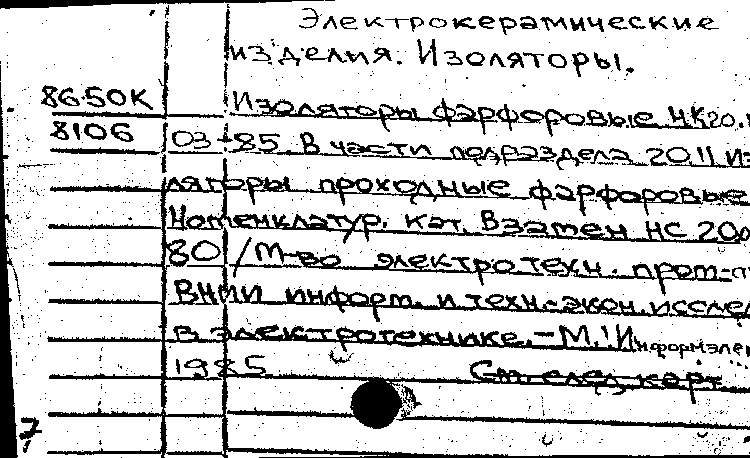 Электрокерамические
изделия. Изоляторы.
86-50К Изоляторы фарфоровые НК20.
8106 03-85. В части подраздела 20.11 из
ляторы проходные фарфоровые
Номенклатур. кат. Взамен НС 200
80 / М-во электротехн. пром-ст
ВНИИ информ. и техн.-экон. исслед
в электротехнике. - М.: Информэлек
1985 См. след. карт.
7